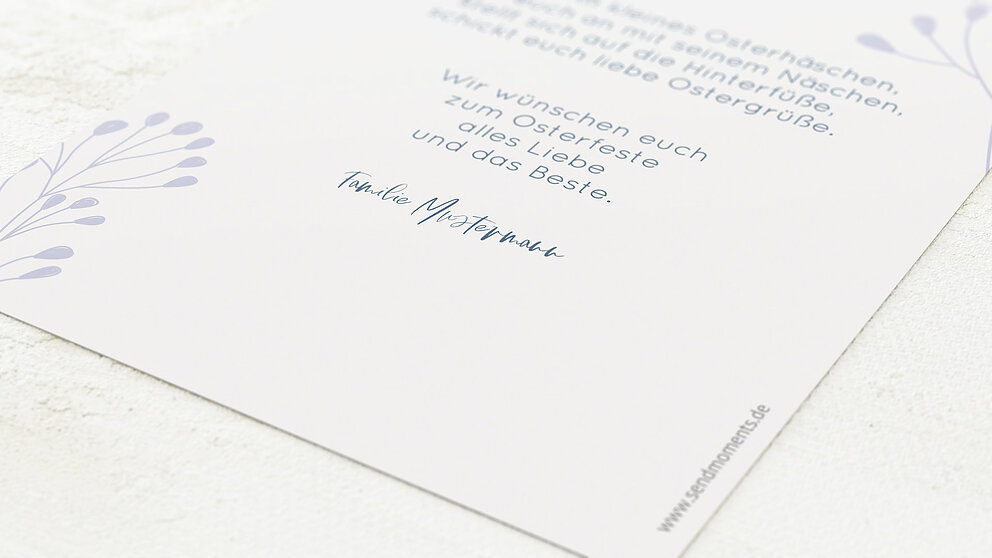 kleines Osterhäschen,
euch an mit seinem Näschen,
stellt sich auf die Hinterfüße,
schickt euch liebe Ostergrüße.
Wir wünschen euch
zum Osterfeste
alles Liebe
und das Beste.
Familie Mustermann
www.sendmoments.de